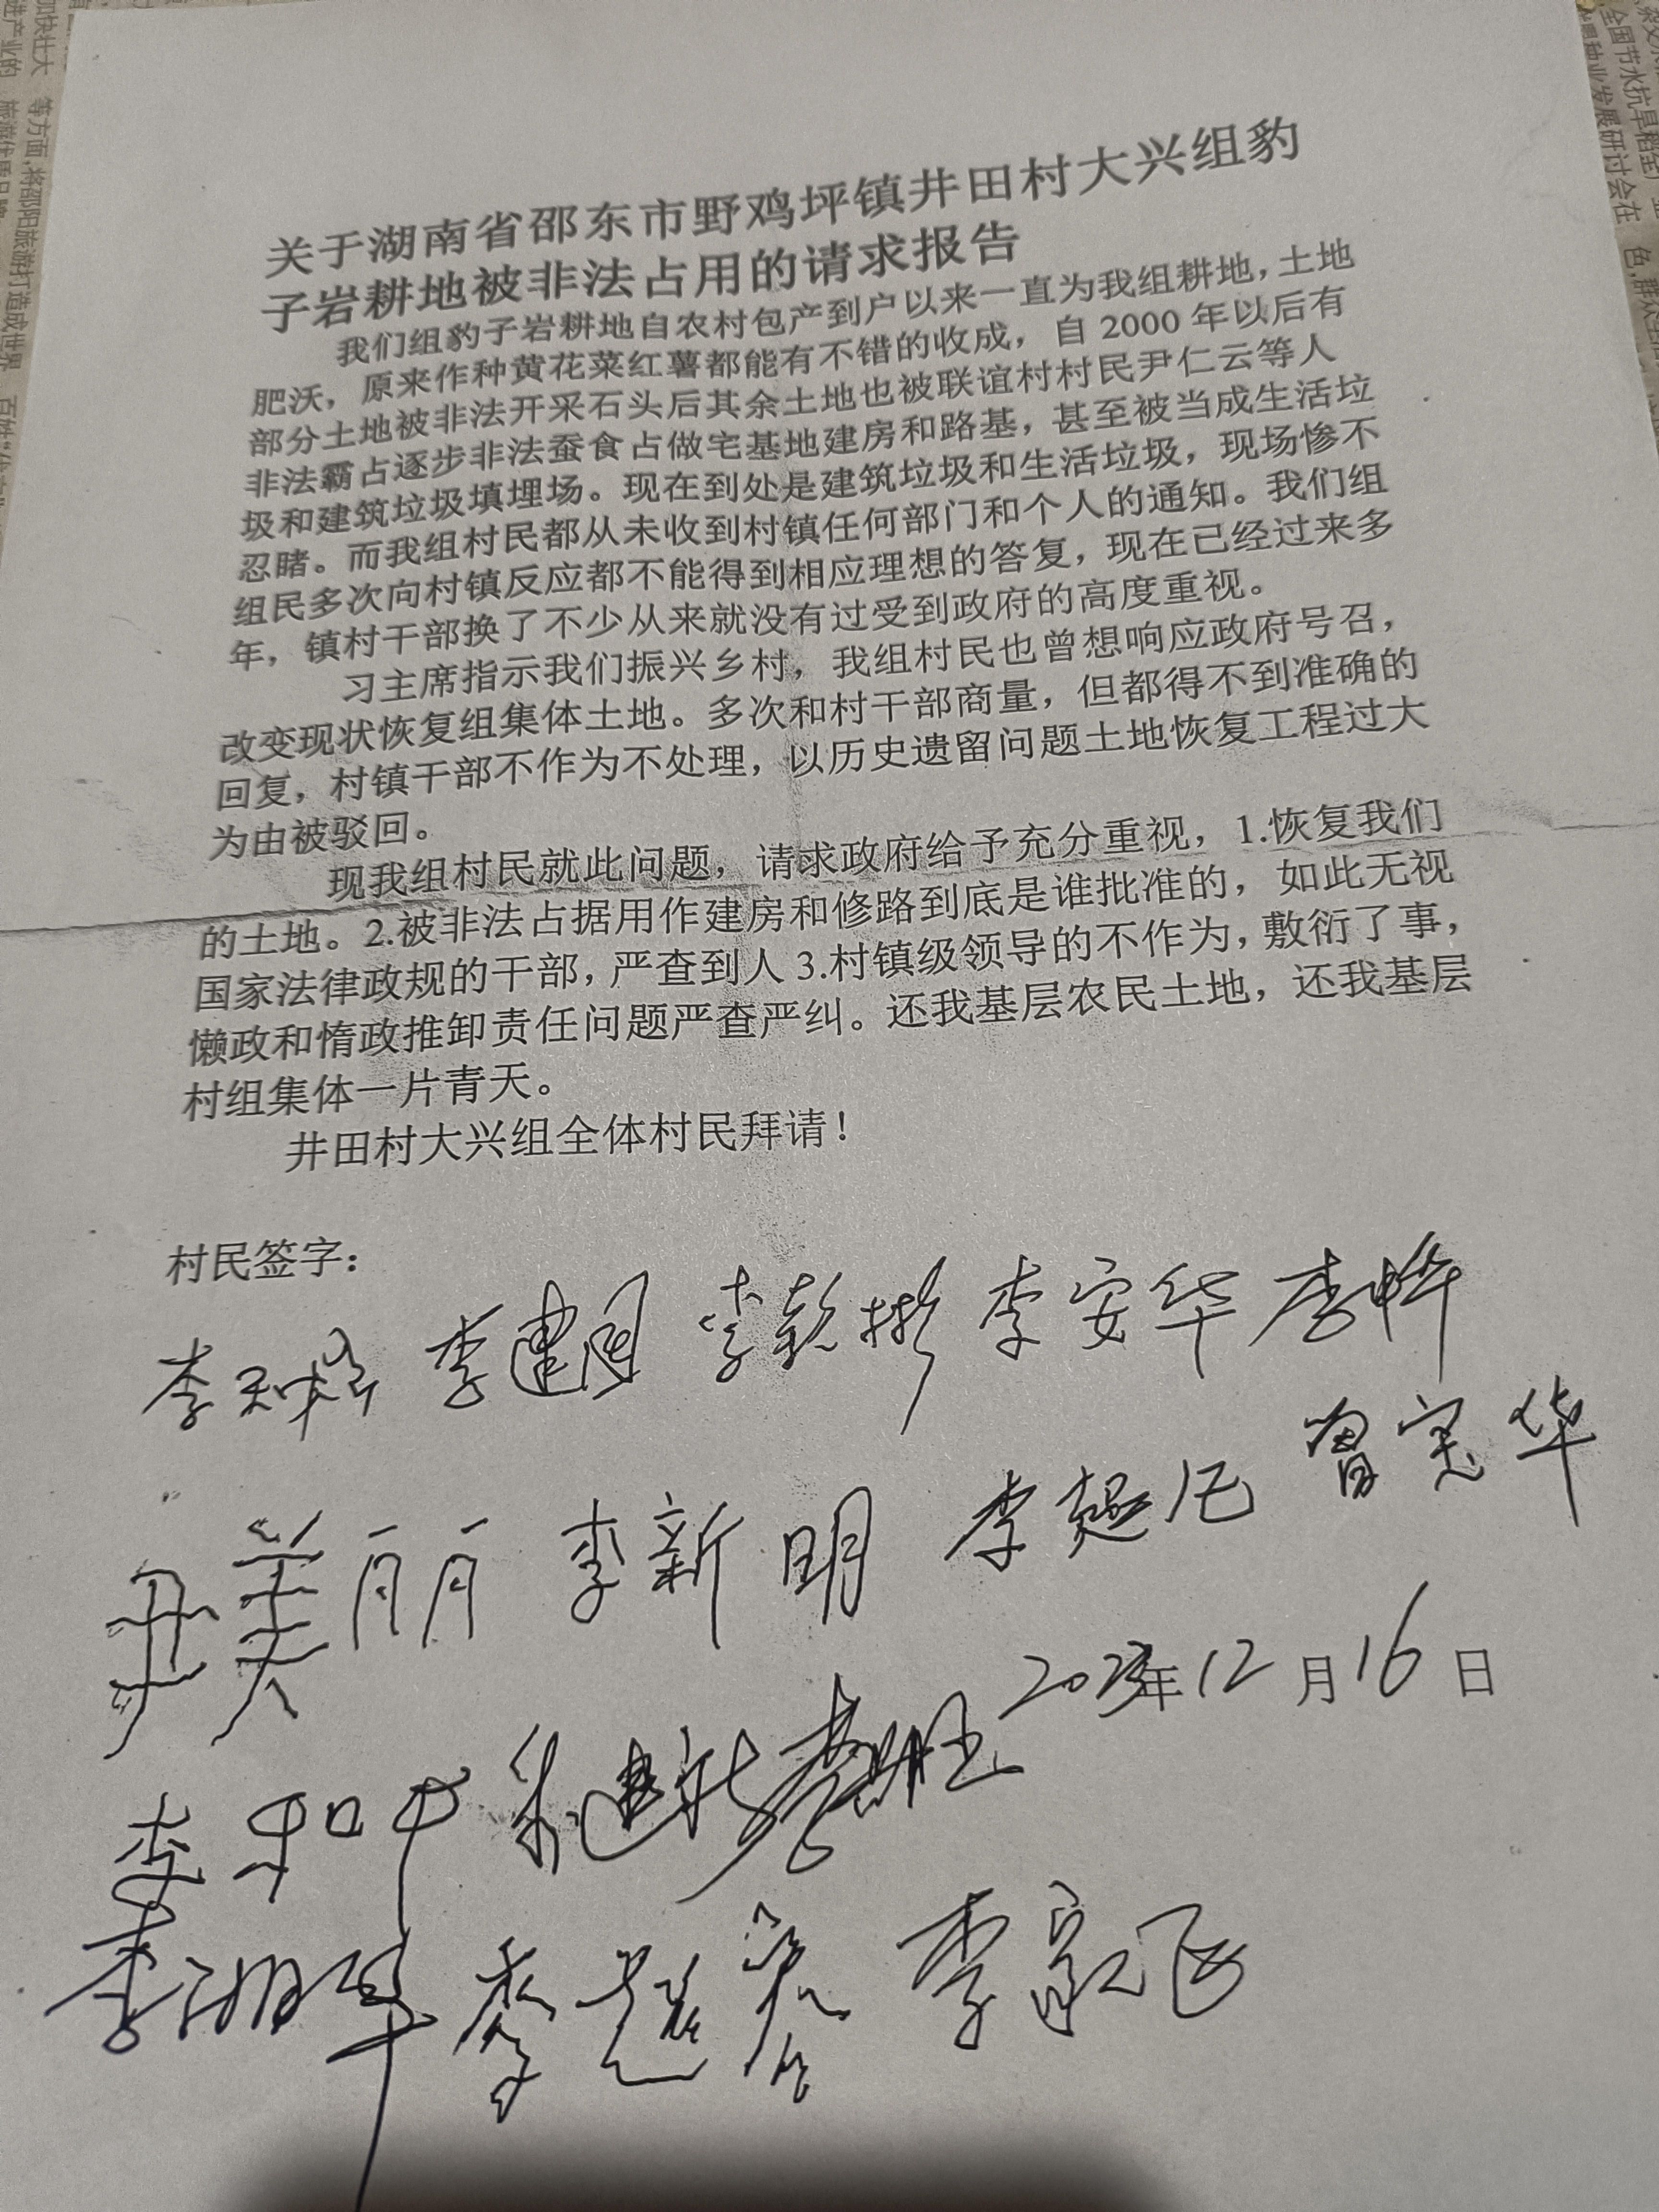 关于湖南省邵东市野鸡坪镇井田村大兴组豹
子岩耕地被非法占用的请求报告
我们组豹子岩耕地自农村包产到户以来一直为我组耕地，土地
肥沃，原来作种黄花菜红薯都能有不错的收成，自 2000 年以后有
部分土地被非法开采石头后其余土地也被联谊村村民尹仁云等人
非法霸占逐步非法蚕食占做宅基地建房和路基，甚至被当成生活垃
圾和建筑垃圾填埋场。现在到处是建筑垃圾和生活垃圾，现场惨不
忍睹。而我组村民都从未收到村镇任何部门和个人的通知。我们组
组民多次向村镇反应都不能得到相应理想的答复，现在已经过来多
年，镇村干部换了不少从来就没有过受到政府的高度重视。
习主席指示我们振兴乡村，我组村民也曾想响应政府号召，
改变现状恢复组集体土地。多次和村干部商量，但都得不到准确的
回复，村镇干部不作为不处理，以历史遗留问题土地恢复工程过大
为由被驳回。
现我组村民就此问题，请求政府给予充分重视，1.恢复我们
的土地。2.被非法占据用作建房和修路到底是谁批准的，如此无视
国家法律政规的干部，严查到人 3.村镇级领导的不作为，敷衍了事，
懒政和惰政推卸责任问题严查严纠。还我基层农民土地，还我基层
村组集体一片青天。
井田村大兴组全体村民拜请！
村民签字：
李建国 李安华
尹美丽 李新明 曾宪华
2023年 12 月 16 日
李和平
李湘华 李家飞